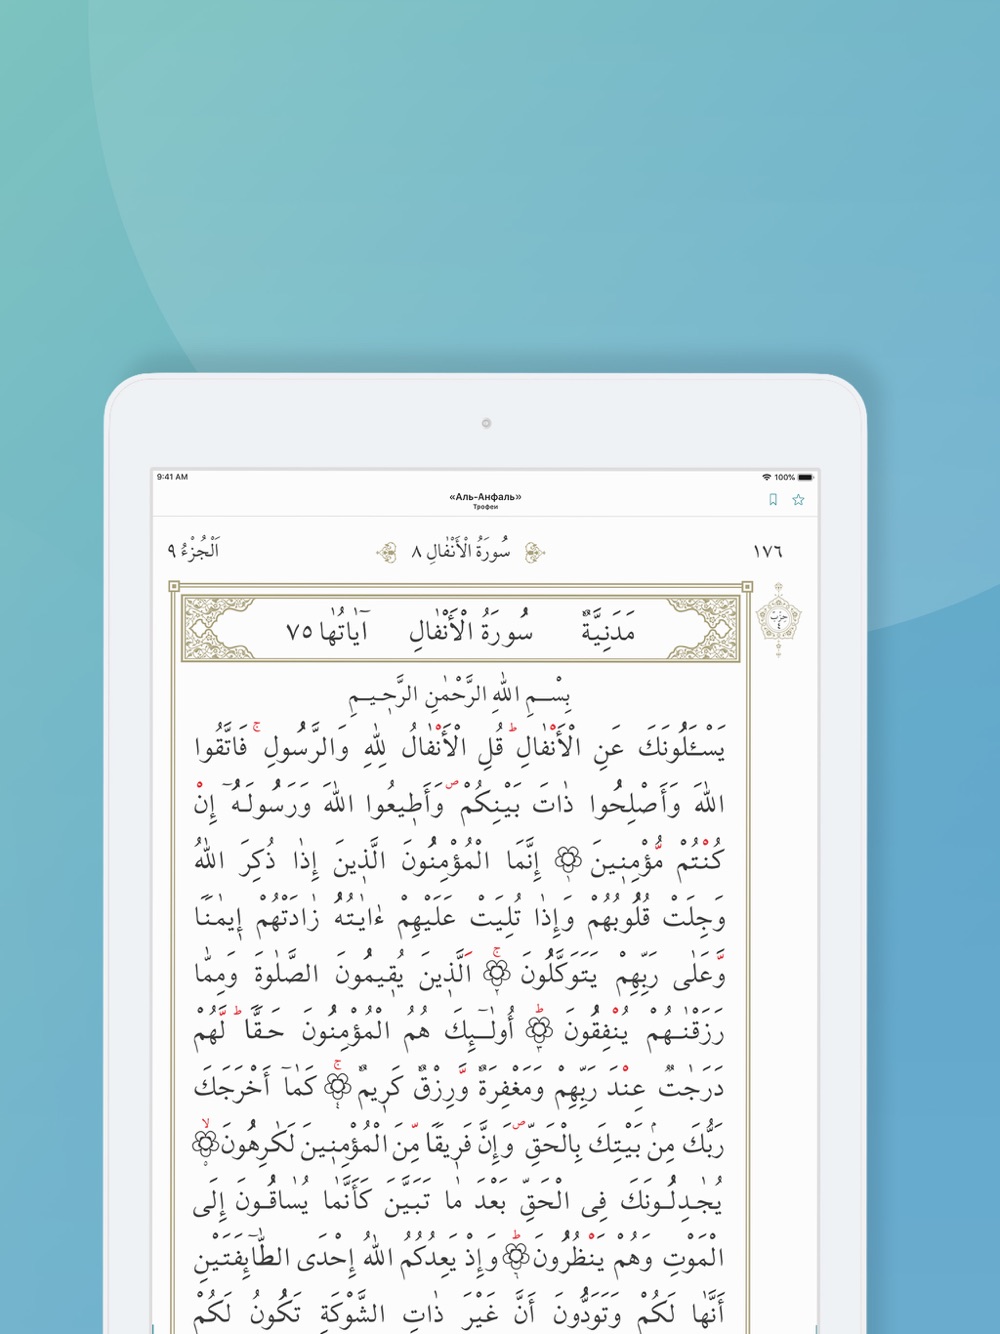 9:41 AM 100%
«Аль-Анфаль»
Трофеи
١٧٦ سُورَةُ الْأَنْفَالِ ٨ اَلْجُزْءُ ٩
حِزْب ٤
مَدَنِيَّةٌ سُورَةُ الْأَنْفَالِ اٰيَاتُهَا ٧٥
بِسْمِ اللهِ الرَّحْمٰنِ الرَّحِيمِ
يَسْـَٔلُونَكَ عَنِ الْأَنْفَالِ ۖ ط قُلِ الْأَنْفَالُ لِلّٰهِ وَالرَّسُولِ ج فَاتَّقُوا
اللهَ وَأَصْلِحُوا ذَاتَ بَيْنِكُمْ ص وَأَطِيعُوا اللهَ وَرَسُولَهُٓ إِنْ
كُنْتُمْ مُّؤْمِنِينَ ١ إِنَّمَا الْمُؤْمِنُونَ الَّذِينَ إِذَا ذُكِرَ اللهُ
وَجِلَتْ قُلُوبُهُمْ وَإِذَا تُلِيَتْ عَلَيْهِمْ ءَايٰتُهُ زَادَتْهُمْ إِيمٰنًا
وَّعَلٰى رَبِّهِمْ يَتَوَكَّلُونَ ج ٢ اَلَّذِينَ يُقِيمُونَ الصَّلٰوةَ وَمِمَّا
رَزَقْنٰهُمْ يُنْفِقُونَ ط ٣ أُولٰٓئِكَ هُمُ الْمُؤْمِنُونَ حَقًّا ط لَّهُمْ
دَرَجٰتٌ عِنْدَ رَبِّهِمْ وَمَغْفِرَةٌ وَّرِزْقٌ كَرِيمٌ ج ٤ كَمَآ أَخْرَجَكَ
رَبُّكَ مِنْ بَيْتِكَ بِالْحَقِّ ص وَإِنَّ فَرِيقًا مِّنَ الْمُؤْمِنِينَ لَكٰرِهُونَ لا ٥
يُجٰدِلُونَكَ فِى الْحَقِّ بَعْدَ مَا تَبَيَّنَ كَأَنَّمَا يُسَاقُونَ إِلَى
الْمَوْتِ وَهُمْ يَنْظُرُونَ ط ٦ وَإِذْ يَعِدُكُمُ اللهُ إِحْدَى الطَّآئِفَتَيْنِ
أَنَّهَا لَكُمْ وَتَوَدُّونَ أَنَّ غَيْرَ ذَاتِ الشَّوْكَةِ تَكُونُ لَكُمْ